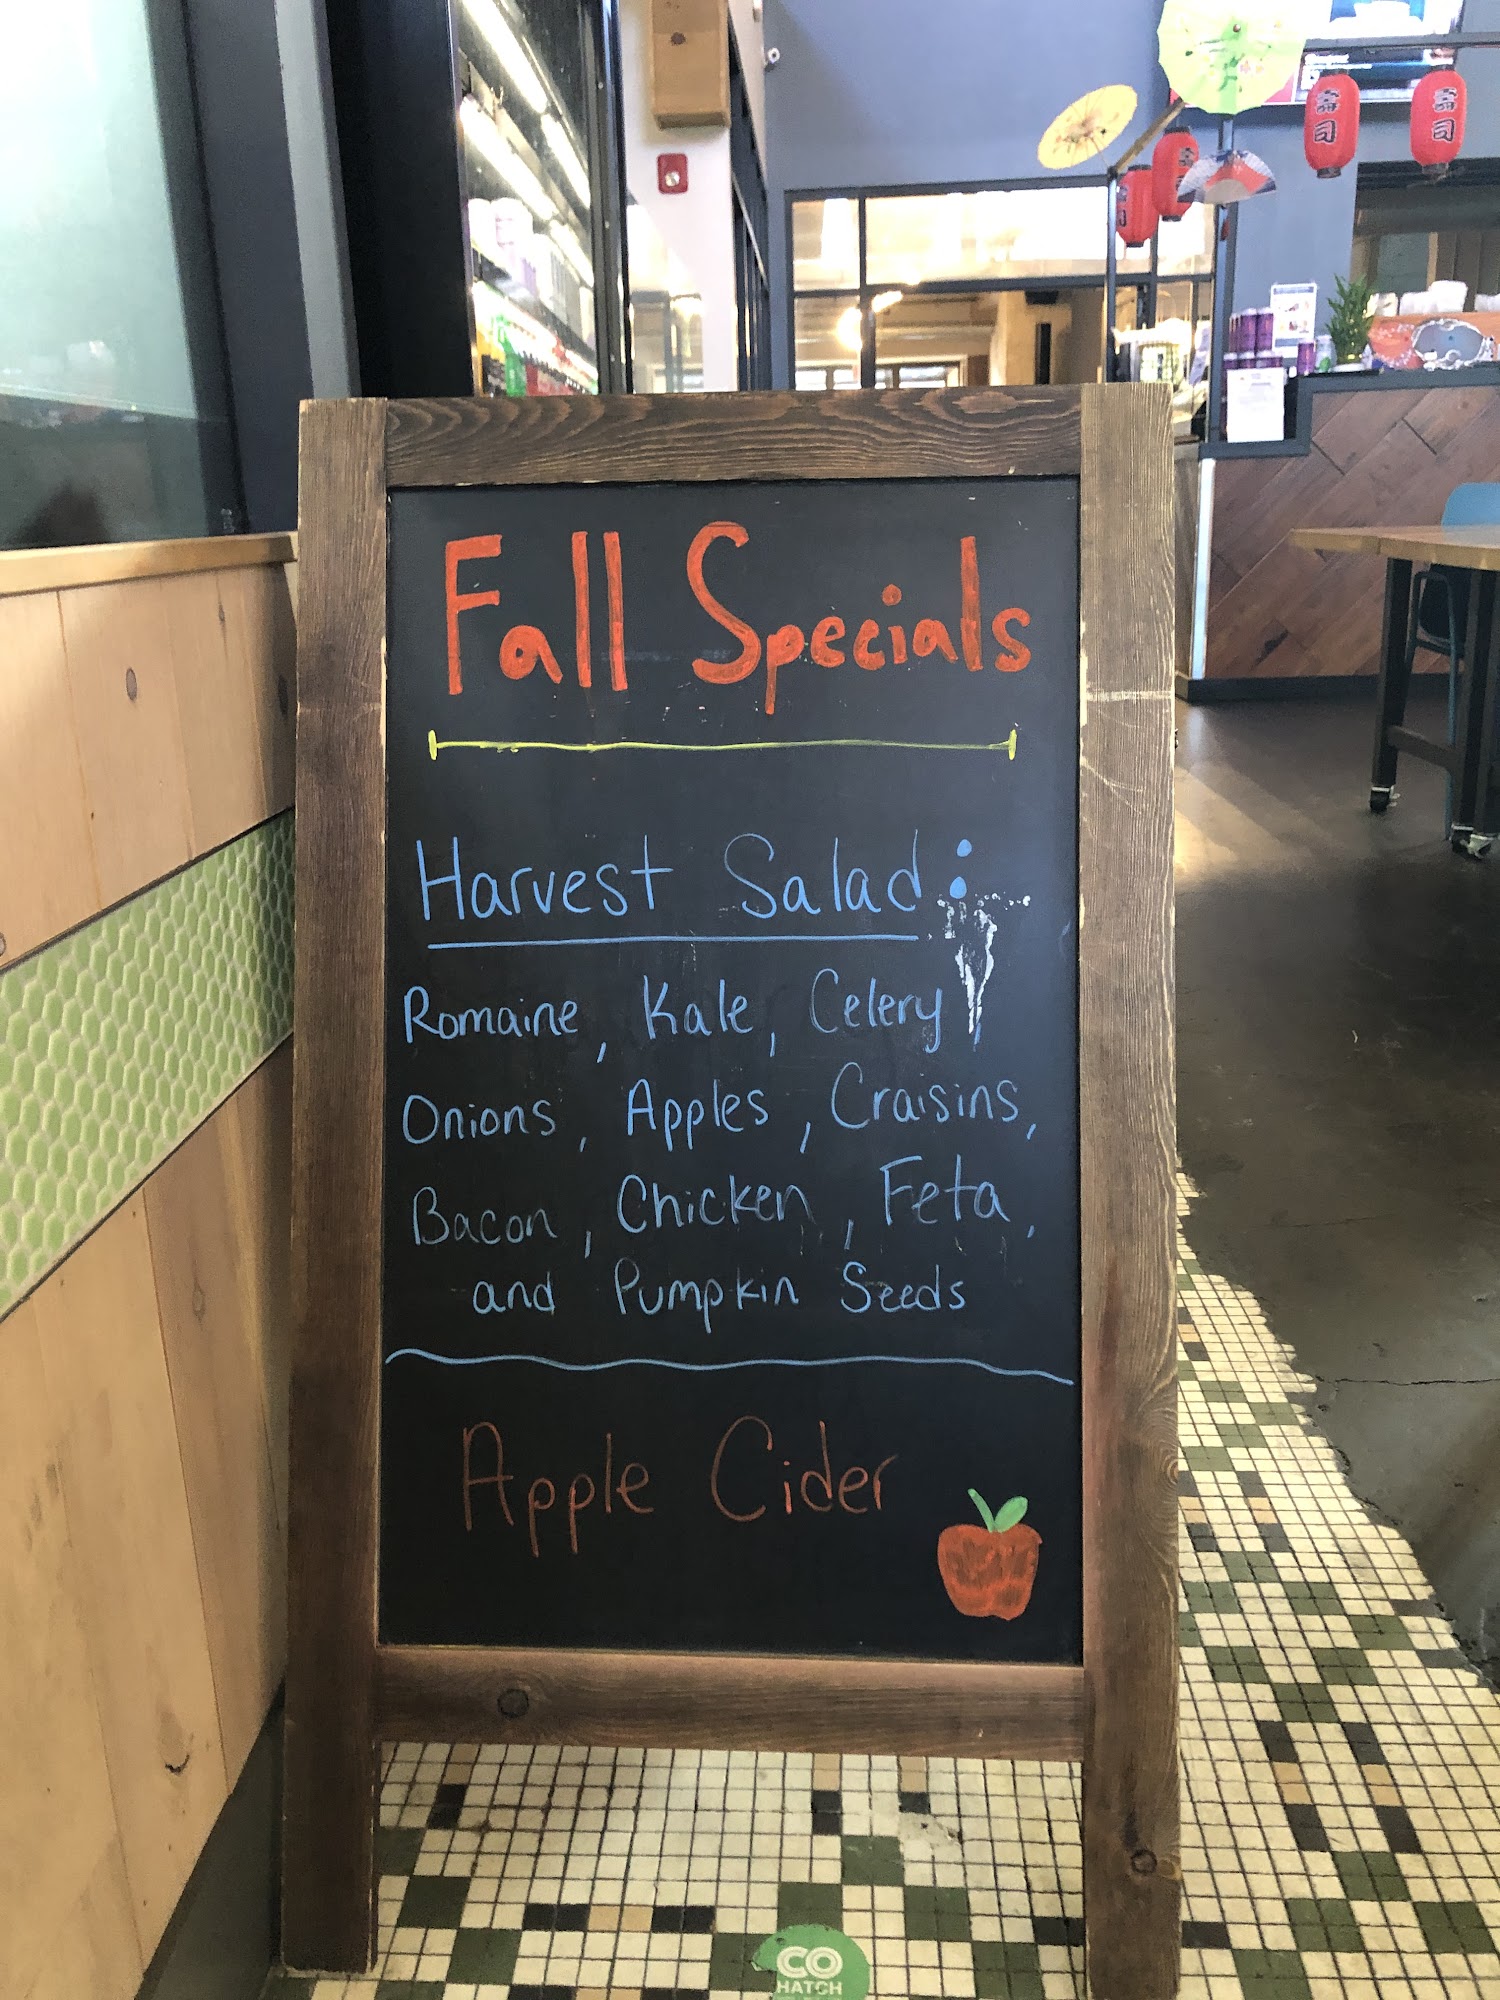 寿司
寿司
Fall Specials
Harvest Salad:
Romaine, Kale, Celery,
Onions, Apples, Craisins,
Bacon, Chicken, Feta,
and Pumpkin Seeds
Apple Cider
CO
HATCH